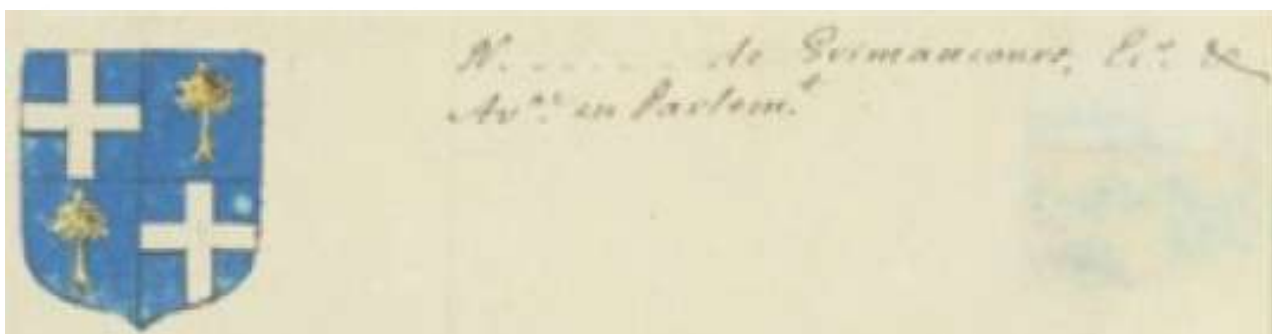 N. . . . . . . de Grimancourt, Ec.r &
Av.at en Parlem.t